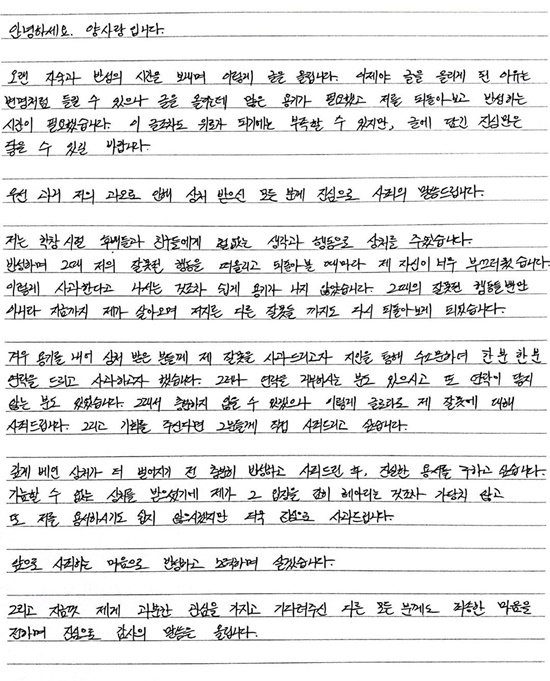 안녕하세요. 양사랑 입니다.
오랜 자숙과 반성의 시간을 보내며 이렇게 글을 올립니다. 이제야 글을 올리게 된 이유는
변명처럼 들릴 수 있으나 글을 올리는데 많은 용기가 필요했고 저를 되돌아보고 반성하는
시간이 필요했습니다. 이 글조차도 위로가 되기에는 부족할 수 있지만, 글에 담긴 진심만은
닿을 수 있길 바랍니다.
우선 과거 저의 과오로 인해 상처 받으신 모든 분께 진심으로 사죄의 말씀드립니다.
저는 학창시절 후배들과 친구들에게 철없는 생각과 행동으로 상처를 주었습니다.
반성하며 그때 저의 잘못된 행동을 떠올리고 되돌아볼 때마다 제 자신이 너무 부끄러웠습니다.
이렇게 사과한다고 나서는 것조차 쉽게 용기가 나지 않았습니다. 그때의 잘못된 행동들뿐만
아니라 지금까지 제가 살아오며 저지른 다른 잘못들 까지도 다시 되돌아보게 되었습니다.
겨우 용기를 내어 상처 받은 분들께 제 잘못을 사과드리고자 지인을 통해 수소문하여 한분 한분
연락을 드리고 사과하고자 했습니다. 그러나 연락을 거부하시는 분도 있으시고 또 연락이 닿지
않는 분도 있었습니다. 그래서 충분하지 않을 수 있겠으나 이렇게 글로라도 제 잘못에 대해
사죄드립니다. 그리고 기회를 주신다면 그분들께 직접 사죄드리고 싶습니다.
깊게 베인 상처가 더 벌어지기 전 충분히 반성하고 사죄드린 후, 진실한 용서를 구하고 싶습니다.
가늠할 수 없는 상처를 받으셨기에 제가 그 입장을 감히 헤아리는 것조차 가당치 않고
또 저를 용서하시기도 쉽지 않으시겠지만 더욱 진심으로 사과드립니다.
앞으로 사죄하는 마음으로 반성하고 노력하며 살겠습니다.
그리고 지금껏 제게 과분한 관심을 가지고 기다려주신 다른 모든 분께도 죄송한 마음을
전하며 진심으로 감사의 말씀을 올립니다.